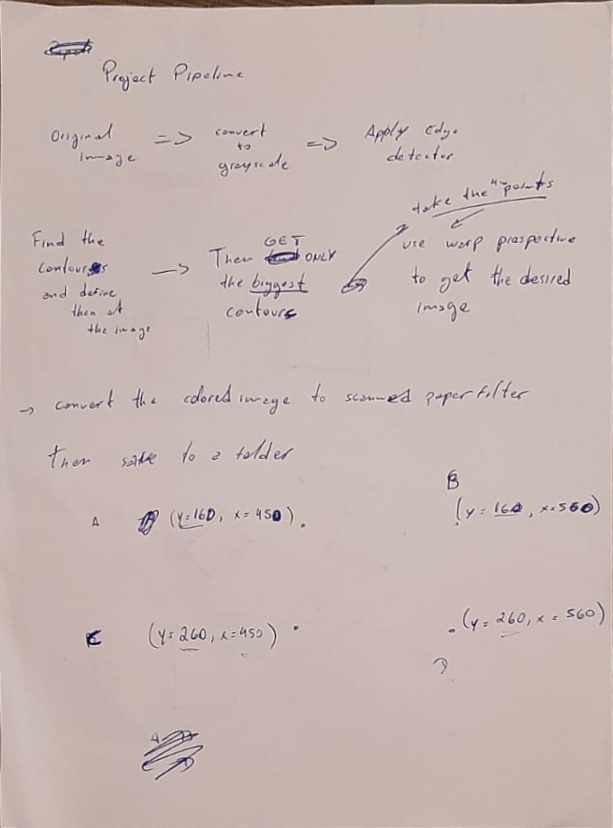 Project Pipeline
Original
image
=> convert
to
grayscale
=> Apply Edge
detector
Find the
contours
and define
them at
the image
-> Then GET ONLY
the biggest
contours
take the 4 points
use warp prespective
to get the desired
image
-> convert the colored image to scanned paper filter
then save to a folder
A (y=160, x=450).
B
(y=160, x=560)
C (y=260, x=450) .
. (y=260, x=560)